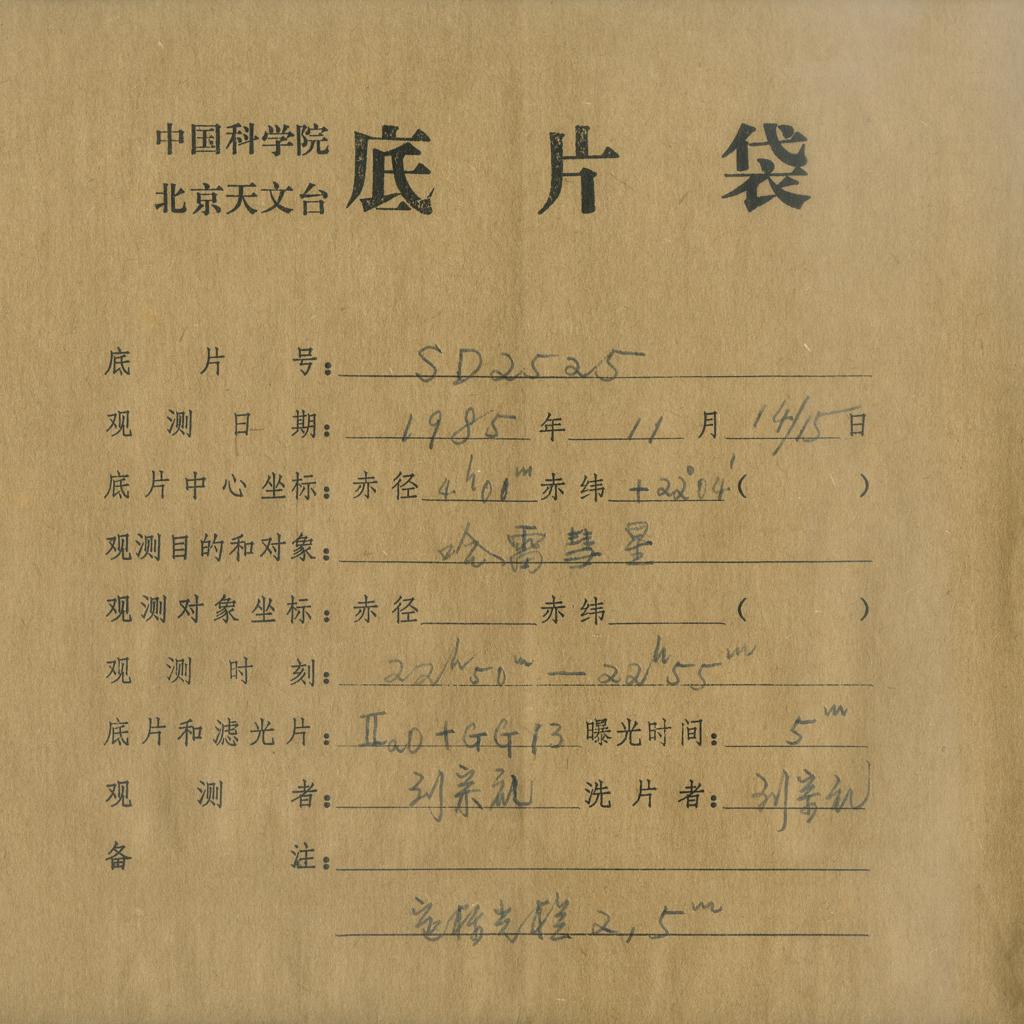 中国科学院
北京天文台 底片袋
底片号：SD2525
观测日期：1985年11月14/15日
底片中心坐标：赤径4ʰ01ᵐ赤纬+22°04′（ ）
观测目的和对象：哈雷彗星
观测对象坐标：赤径 赤纬 （ ）
观测时刻：22ʰ50ᵐ—22ʰ55ᵐ
底片和滤光片：ⅡaO+GG13 曝光时间：5ᵐ
观测者：刘宗礼 洗片者：刘宗礼
备注：
定标光楼 2,5ᵐ